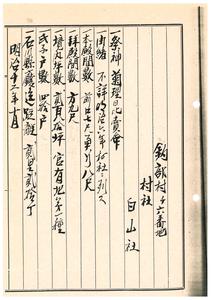 鈎部村千六番地
村社
白山社
一祭神 菊理比賣命
一由緒 不詳明治六年村社ニ列ス
一本殿間数 前口七尺奥行八尺
一拝殿間数 方九尺
一境内坪数 貳百八拾坪 官有地第一種
一氏子戸数 四拾戸
一石川縣廳ヘ遠距離 貳里貳拾丁
明治十三年十月